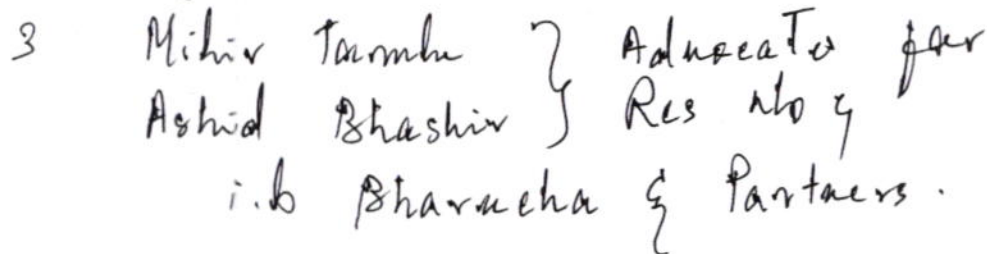 3 Mihir Tarmhe } Advocates for
Ashid Bhashir } Res No 4
i.b Bharucha & Partners.